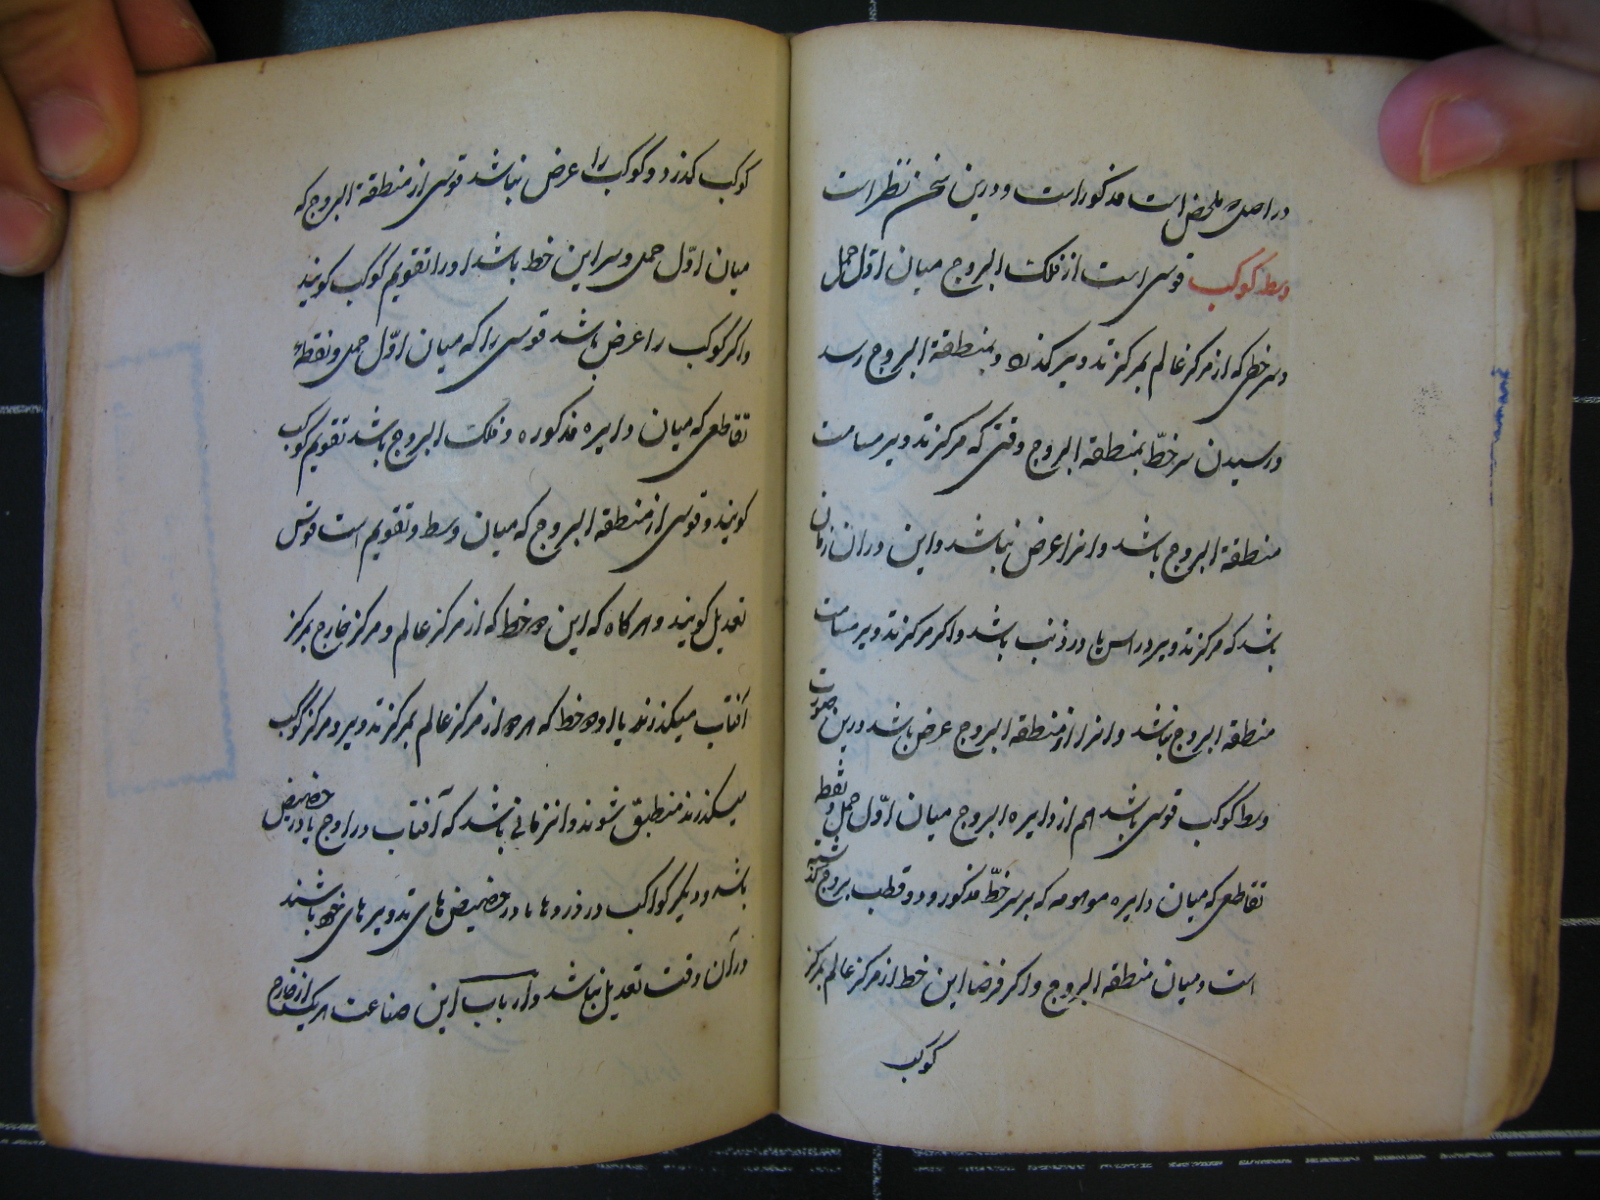 در اصل ملخص است مذکور است و درین سخن نظر است
وسط کوکب قوسی است از فلک البروج میان اول حمل
و سر خطی که از مرکز عالم بمرکز تدویر کذرد و بمنطقة البروج رسد
و رسیدن سر خطّ بمنطقة البروج وقتی که مرکز تدویر مسامت
منطقة البروج باشد و انرا عرض نباشد و این در ان زمان
باشد که مرکز تدویر در راس یا در ذنب باشد و اکر مرکز تدویر مسامت
منطقة البروج نباشد و انرا از منطقة البروج عرض باشد درین صورت
وسط کوکب قوسی باشد هم از دایره البروج میان اوّل حمل و نقطه
تقاطعی که میان دایره موهومه که بر سر خطّ مذکور و دو قطب بروج کذشته
است و میان منطقة البروج و اکر فرضا این خط از مرکز عالم بمرکز
کوکب
کوکب کذرد و کوکب را عرض نباشد قوسی از منطقة البروج که
میان اوّل حمل و سر این خط باشد او را تقویم کوکب کویند
و اکر کوکب را عرض باشد قوسی را که میان اوّل حمل و نقطهٔ
تقاطعی که میان دایره مذکوره و فلک البروج باشد تقویم کوکب
کویند و قوسی از منطقة البروج که میان وسط و تقویم است قوس
تعدیل کویند و هرکاه که این دو خط که از مرکز عالم و مرکز خارج بمرکز
آفتاب میکذرند یا او دو خط که هر دو از مرکز عالم بمرکز تدویر و مرکز کوکب
میکذرند منطبق شوند و انزمانی باشد که آفتاب در اوج یا در حضیض
باشد و دیکر کواکب در ذروها یا در حضیض های تدویر های خود باشند
در آن وقت تعدیل نباشد و ارباب این صناعت هر یک از خارج